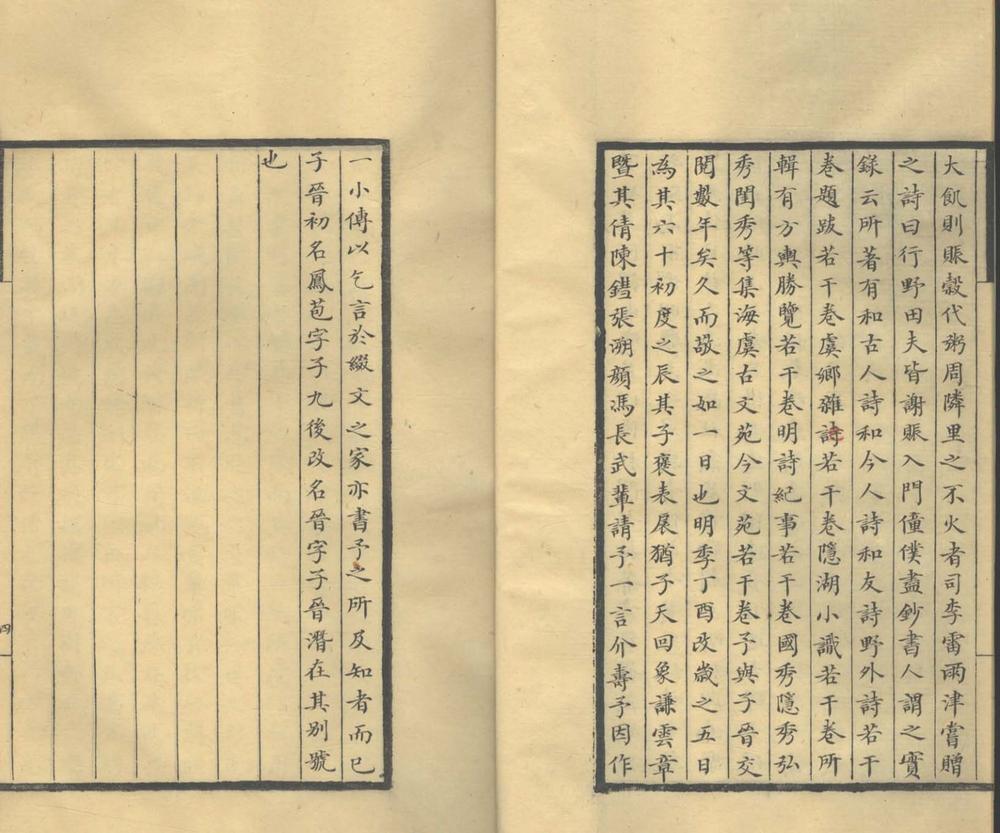 大飢則賑穀代粥周隣里之不火者司李雷雨津嘗贈
之詩曰行野田夫皆謝賑入門僮僕盡鈔書人謂之實
錄云所著有和古人詩和今人詩和友詩野外詩若干
卷題跋若干卷虞鄉雜詩若干卷隱湖小識若干卷所
輯有方輿勝覽若干卷明詩紀事若干卷國秀隱秀弘
秀閨秀等集海虞古文苑今文苑若干卷予與子晉交
閱數年矣久而敬之如一日也明季丁酉改歲之五日
為其六十初度之辰其子褒表扆猶子天回象謙雲章
暨其倩陳鍇張溯顏馮長武輩請予一言介壽予因作
一小傳以乞言於綴文之家亦書予之所及知者而已
子晉初名鳳苞字子九後改名晉字子晉潛在其別號
也
四